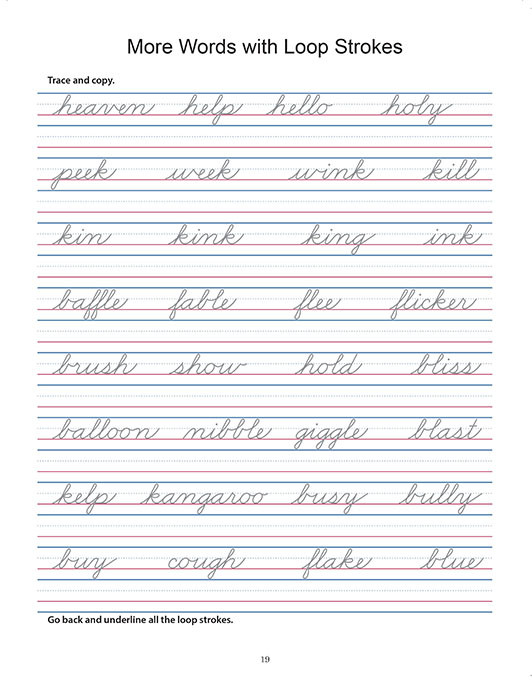 More Words with Loop Strokes
Trace and copy.
heaven help hello holy
peek week wink kill
kin kink king ink
baffle fable flee flicker
brush show hold bliss
balloon nibble giggle blast
kelp kangaroo busy bully
buy cough flake blue
Go back and underline all the loop strokes.
19